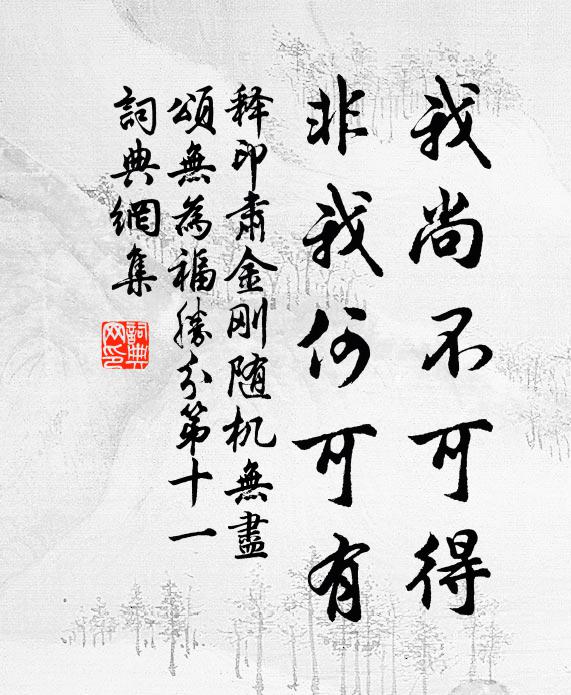 我尚不可得
非我何可有
释印肃金刚随机無盡
頌無為福勝分第十一
詞典網集
詞典網印